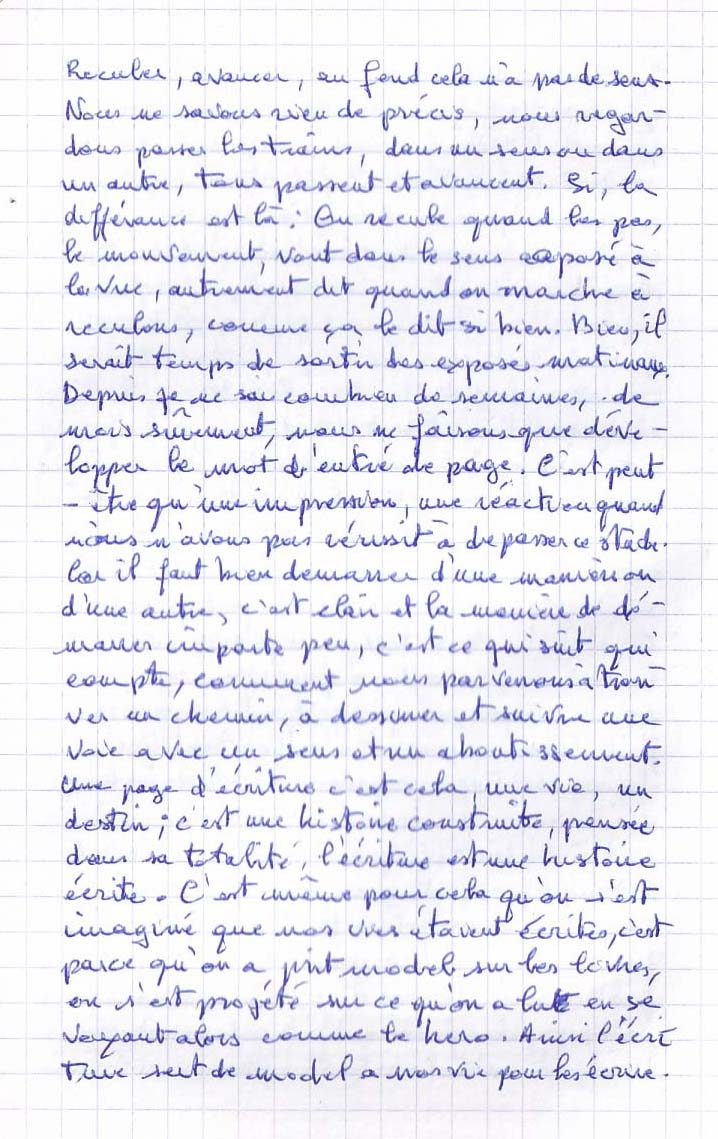 Reculer, avancer, au fond cela n'a pas de sens.
Nous ne savons rien de précis, nous regar-
dons passer les trains, dans un sens ou dans
un autre, tous passent et avancent. Si, la
différance est là : On recule quand les pas,
le mouvement, vont dans le sens opposé à
la vue, autrement dit quand on marche à
reculons, comme ça le dit si bien. Bien, il
serait temps de sortir des exposés matinaux.
Depuis je ne sai combien de semaines, de
mois sûrement, nous ne faisons que déve-
lopper le mot d'entré de page. C'est peut
-être qu'une impression, une réaction quand
nous n'avons pas réussit à depasser ce stade.
Car il faut bien demarrer d'une manière ou
d'une autre, c'est clair et la manière de dé-
marrer importe peu, c'est ce qui suit qui
compte, comment nous parvenons à trou-
ver un chemin, à dessiner et suivre une
voie avec un sens et un aboutissement.
Une page d'écriture c'est cela, une vie, un
destin ; c'est une histoire construite, pensée
dans sa totalité, l'écriture est une histoire
écrite. C'est même pour cela qu'on s'est
imaginé que nos vies étaient écrites, c'est
parce qu'on a prit model sur les livres,
on s'est projété sur ce qu'on a lut en se
voyant alors comme le hero. Ainsi l'écri
ture sert de model a nos vie pour les écrire.